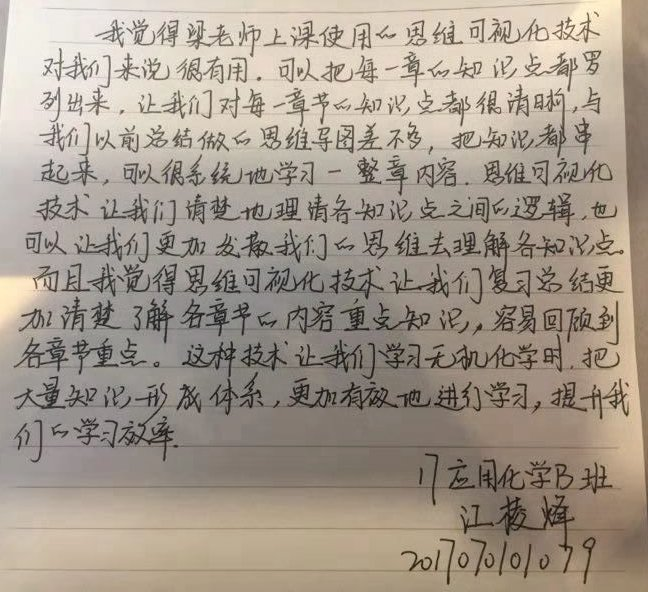 我觉得梁老师上课使用的思维可视化技术
对我们来说很有用。可以把每一章的知识点都罗
列出来，让我们对每一章节的知识点都很清晰，与
我们以前总结做的思维导图差不多，把知识都串
起来，可以很系统地学习一整章内容。思维可视化
技术让我们清楚地理清各知识点之间的逻辑，也
可以让我们更加发散我们的思维去理解各知识点。
而且我觉得思维可视化技术让我们复习总结更
加清楚了解各章节的内容重点知识，容易回顾到
各章节重点。这种技术让我们学习无机化学时，把
大量知识形成体系，更加有效地进行学习，提升我
们的学习效率。
17应用化学B班
江棱烽
201707010179